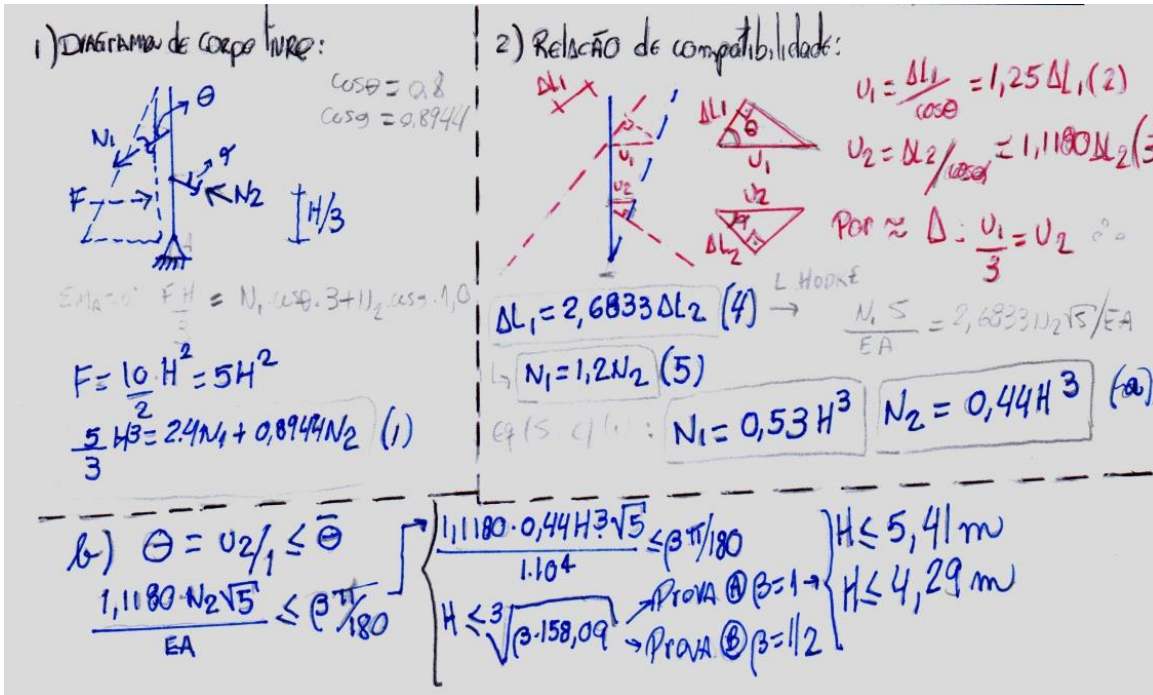 1) DIAGRAMA de corpo livre:
cosθ = 0,8
cosφ = 0,8944
θ
N1
φ
F
N2
H/3
A
ΣMA=0 FH/3 = N1.cosθ.3+N2.cosφ.1,0
F = 10/2 . H² = 5H²
5/3 H³ = 2.4N1 + 0,8944N2 (1)
2) Relação de compatibilidade:
ΔL1
U1
U2
ΔL1
θ
U1
U2
φ
ΔL2
U1 = ΔL1/cosθ = 1,25ΔL1 (2)
U2 = ΔL2/cosφ = 1,1180ΔL2 (3
Por ≈ Δ: U1/3 = U2 ∴
ΔL1 = 2,6833ΔL2 (4) → L. HOOKE N1 5/EA = 2,6833N2√5/EA
↳ N1 = 1,2N2 (5)
Eq (5 c/ (1): N1 = 0,53H³ N2 = 0,44H³ (a)
b) θ = U2/1 ≤ θ̄
1,1180·N2√5/EA ≤ β π/180
1,1180·0,44H³·√5/1.10⁴ ≤ β π/180
H ≤ ³√β·158,09
→ Prova Ⓐ β=1 → H ≤ 5,41 m
→ Prova Ⓑ β=1/2 H ≤ 4,29 m